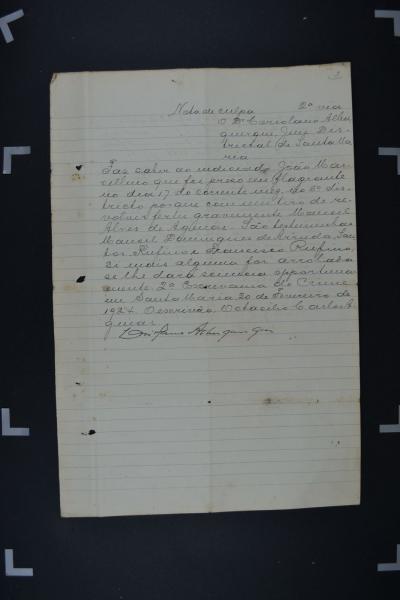 3
Nota de culpa 2ª via
O Dr Coriolano Albu
querque, Juiz Dis-
trictal de Santa Ma
ria
Faz saber ao indiciado João Mar
cellino que foi preso em flagrante
no dia 17 do corrente mez, do 8º dis-
tricto porque com um tiro de re-
volver feriu gravemente Manoel
Alves de Aguiar. São testemunhas
Manoel Domingues de Arruda,
Rufino e Francisco Rufino,
Si mais alguma for arrolada
se lhe dará sciencia opportuna
mente. 2ª Escrivania do Crime
em Santa Maria 20 de Fevereiro de
1924. O escrivão, Octacilio Carlos A
guiar
Coriolano Albuquerque